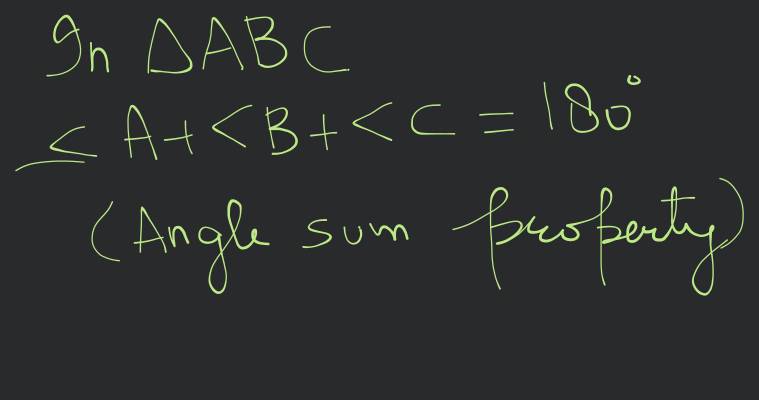 In ΔABC
≤ A+<B+<C = 180°
(Angle sum property)